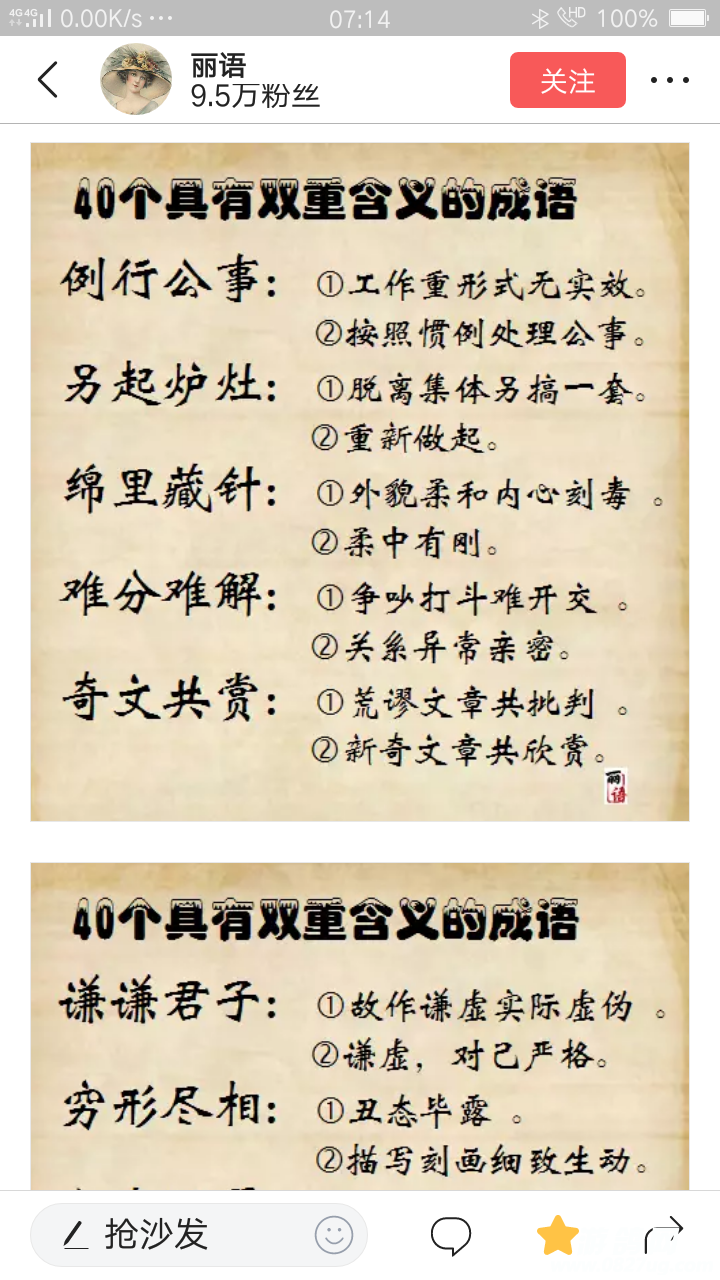 4G 4G 0.00K/s ··· 07:14 HD 100%
丽语
9.5万粉丝
关注
40个具有双重含义的成语
例行公事：①工作重形式无实效。
②按照惯例处理公事。
另起炉灶：①脱离集体另搞一套。
②重新做起。
绵里藏针：①外貌柔和内心刻毒 。
②柔中有刚。
难分难解：①争吵打斗难开交 。
②关系异常亲密。
奇文共赏：①荒谬文章共批判 。
②新奇文章共欣赏。
丽语
40个具有双重含义的成语
谦谦君子：①故作谦虚实际虚伪 。
②谦虚，对己严格。
穷形尽相：①丑态毕露 。
②描写刻画细致生动。
抢沙发